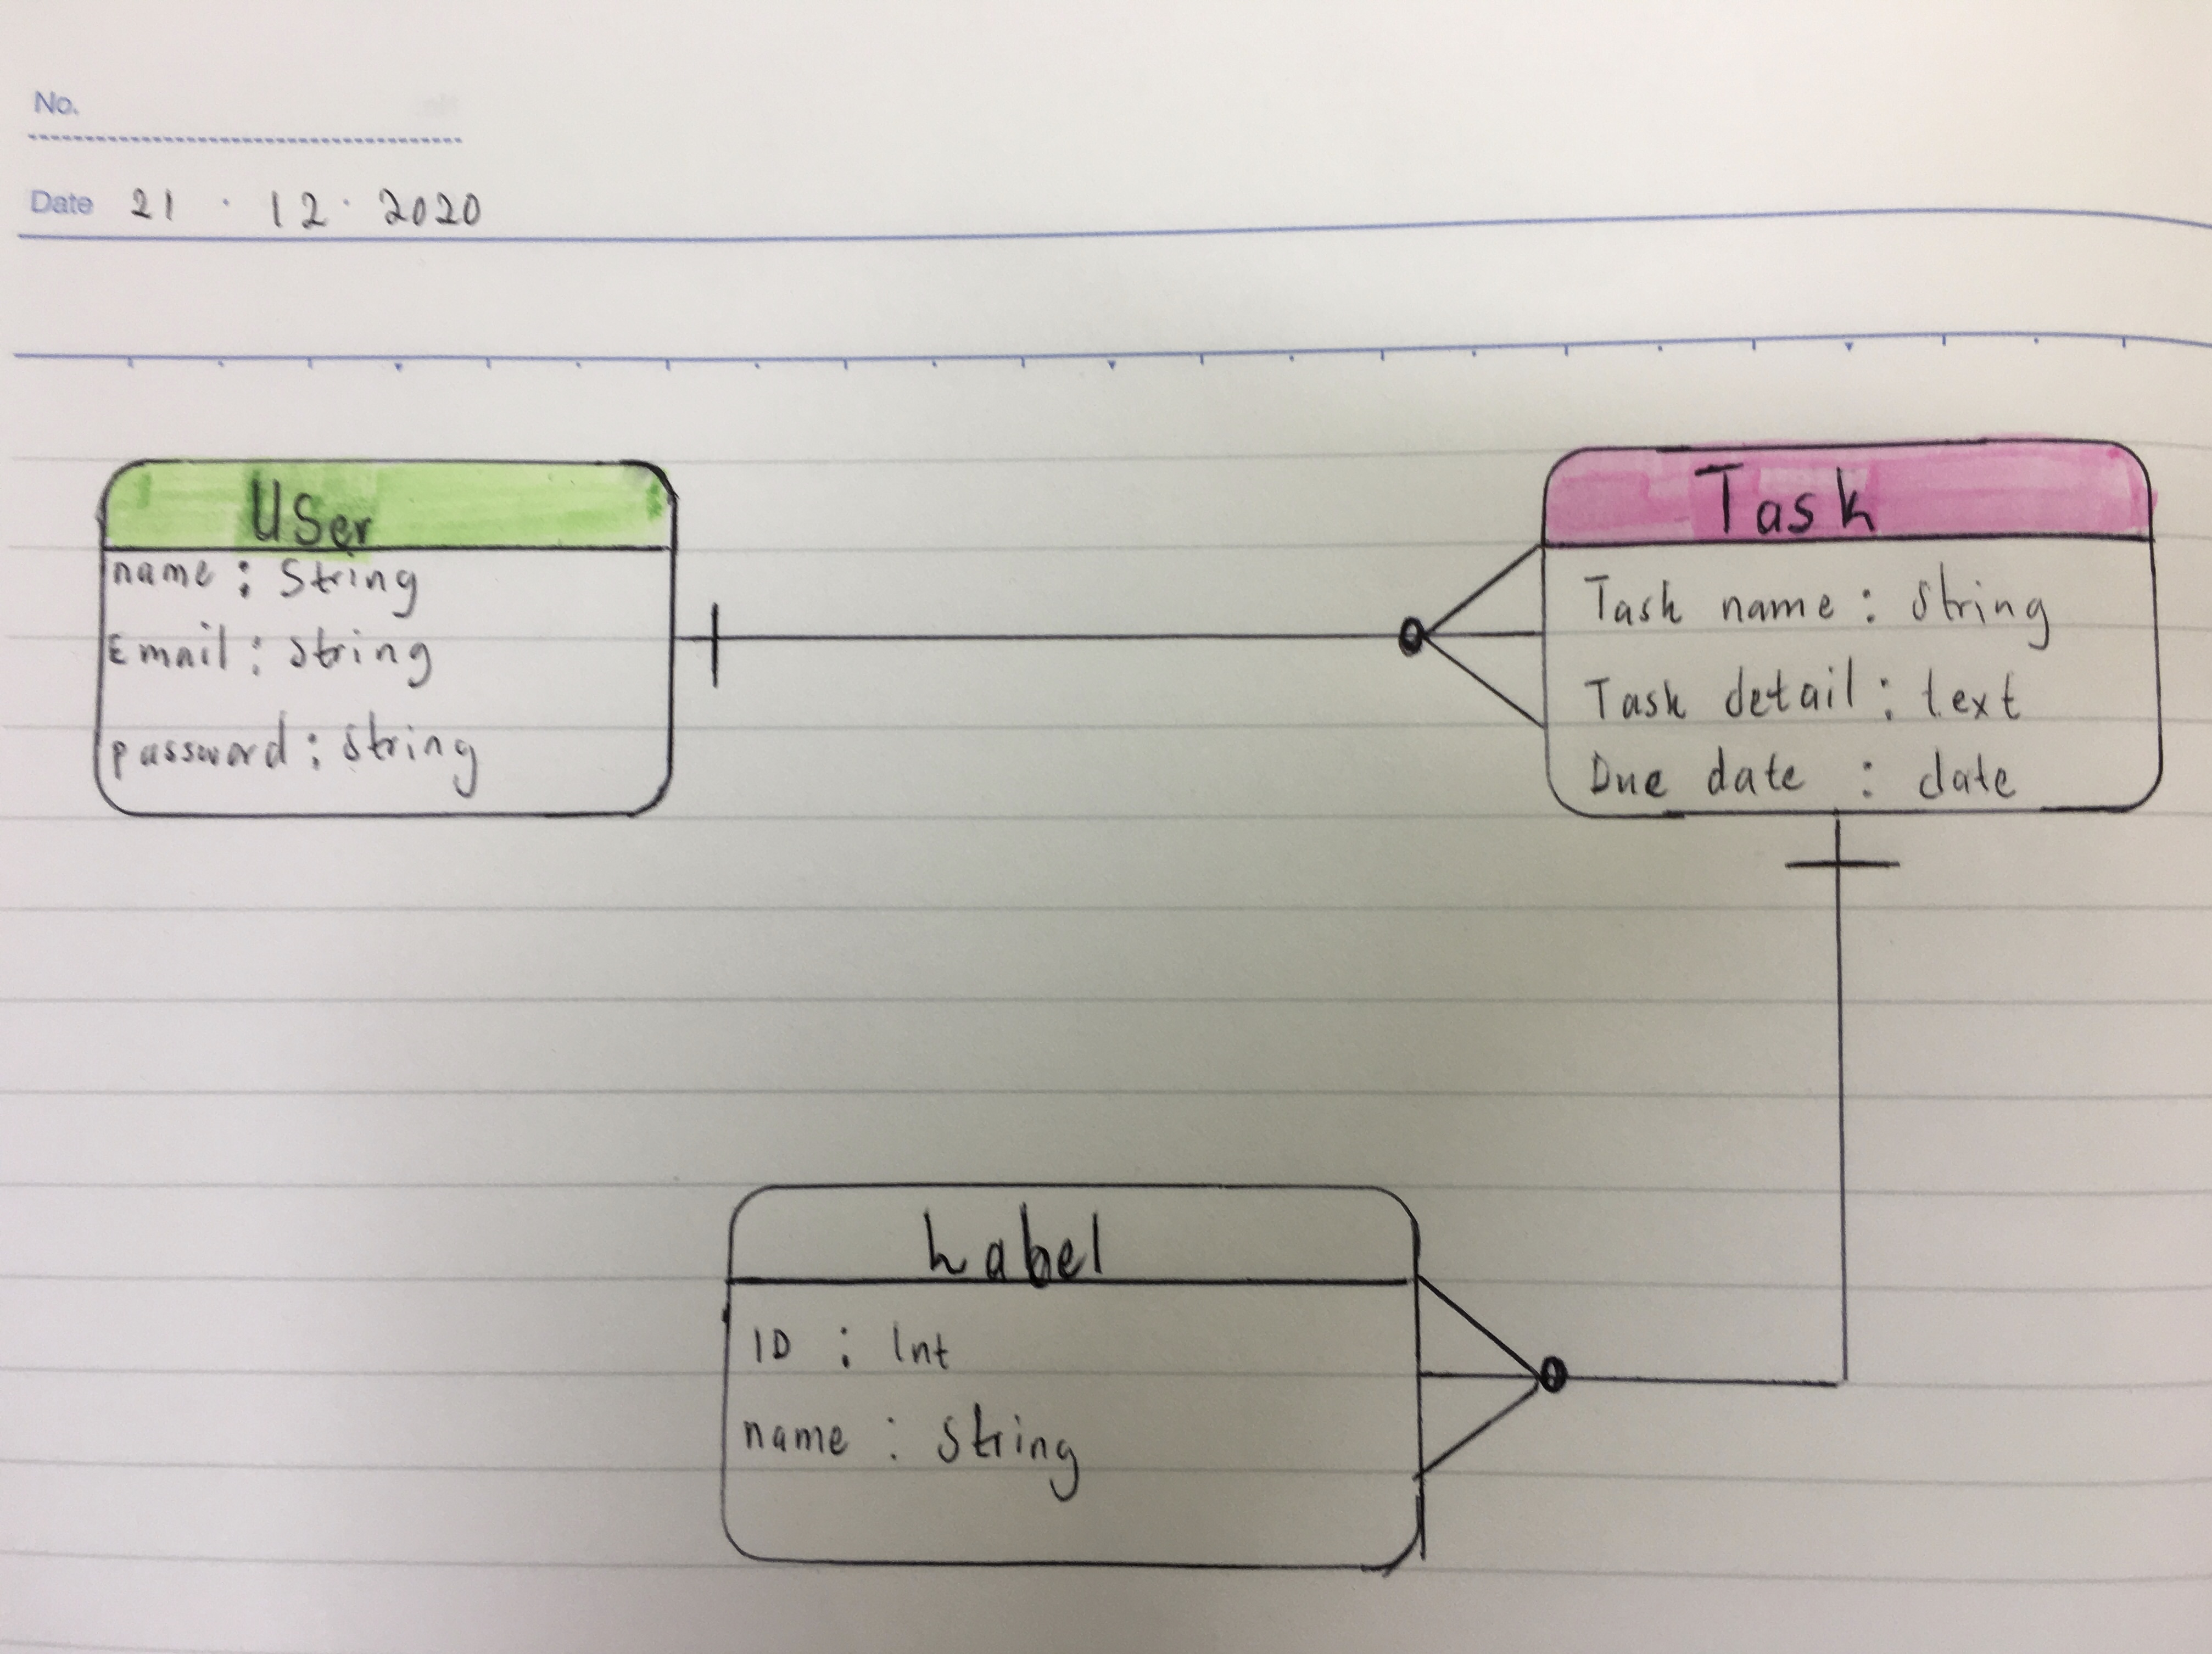 No.
Date 21 · 12 · 2020
User
name : String
Email : String
password : String
Task
Task name : String
Task detail : text
Due date : date
Label
ID : Int
name : String